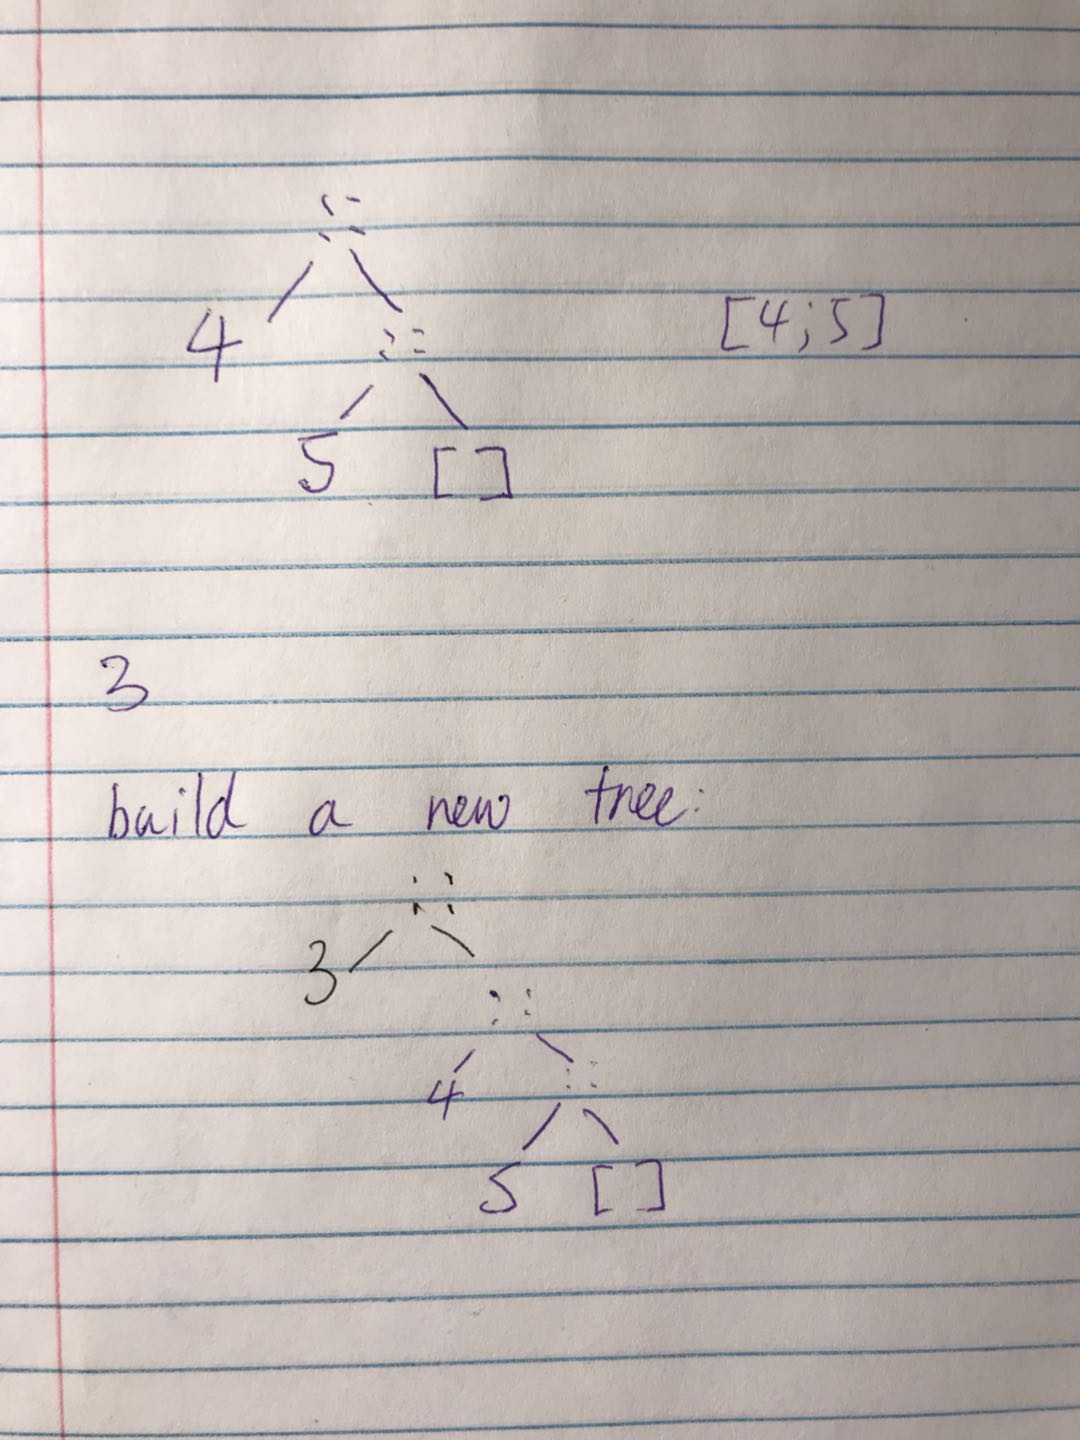 ::
4 :: [4;5]
5 []
3
build a new tree:
::
3
::
4 ::
5 []